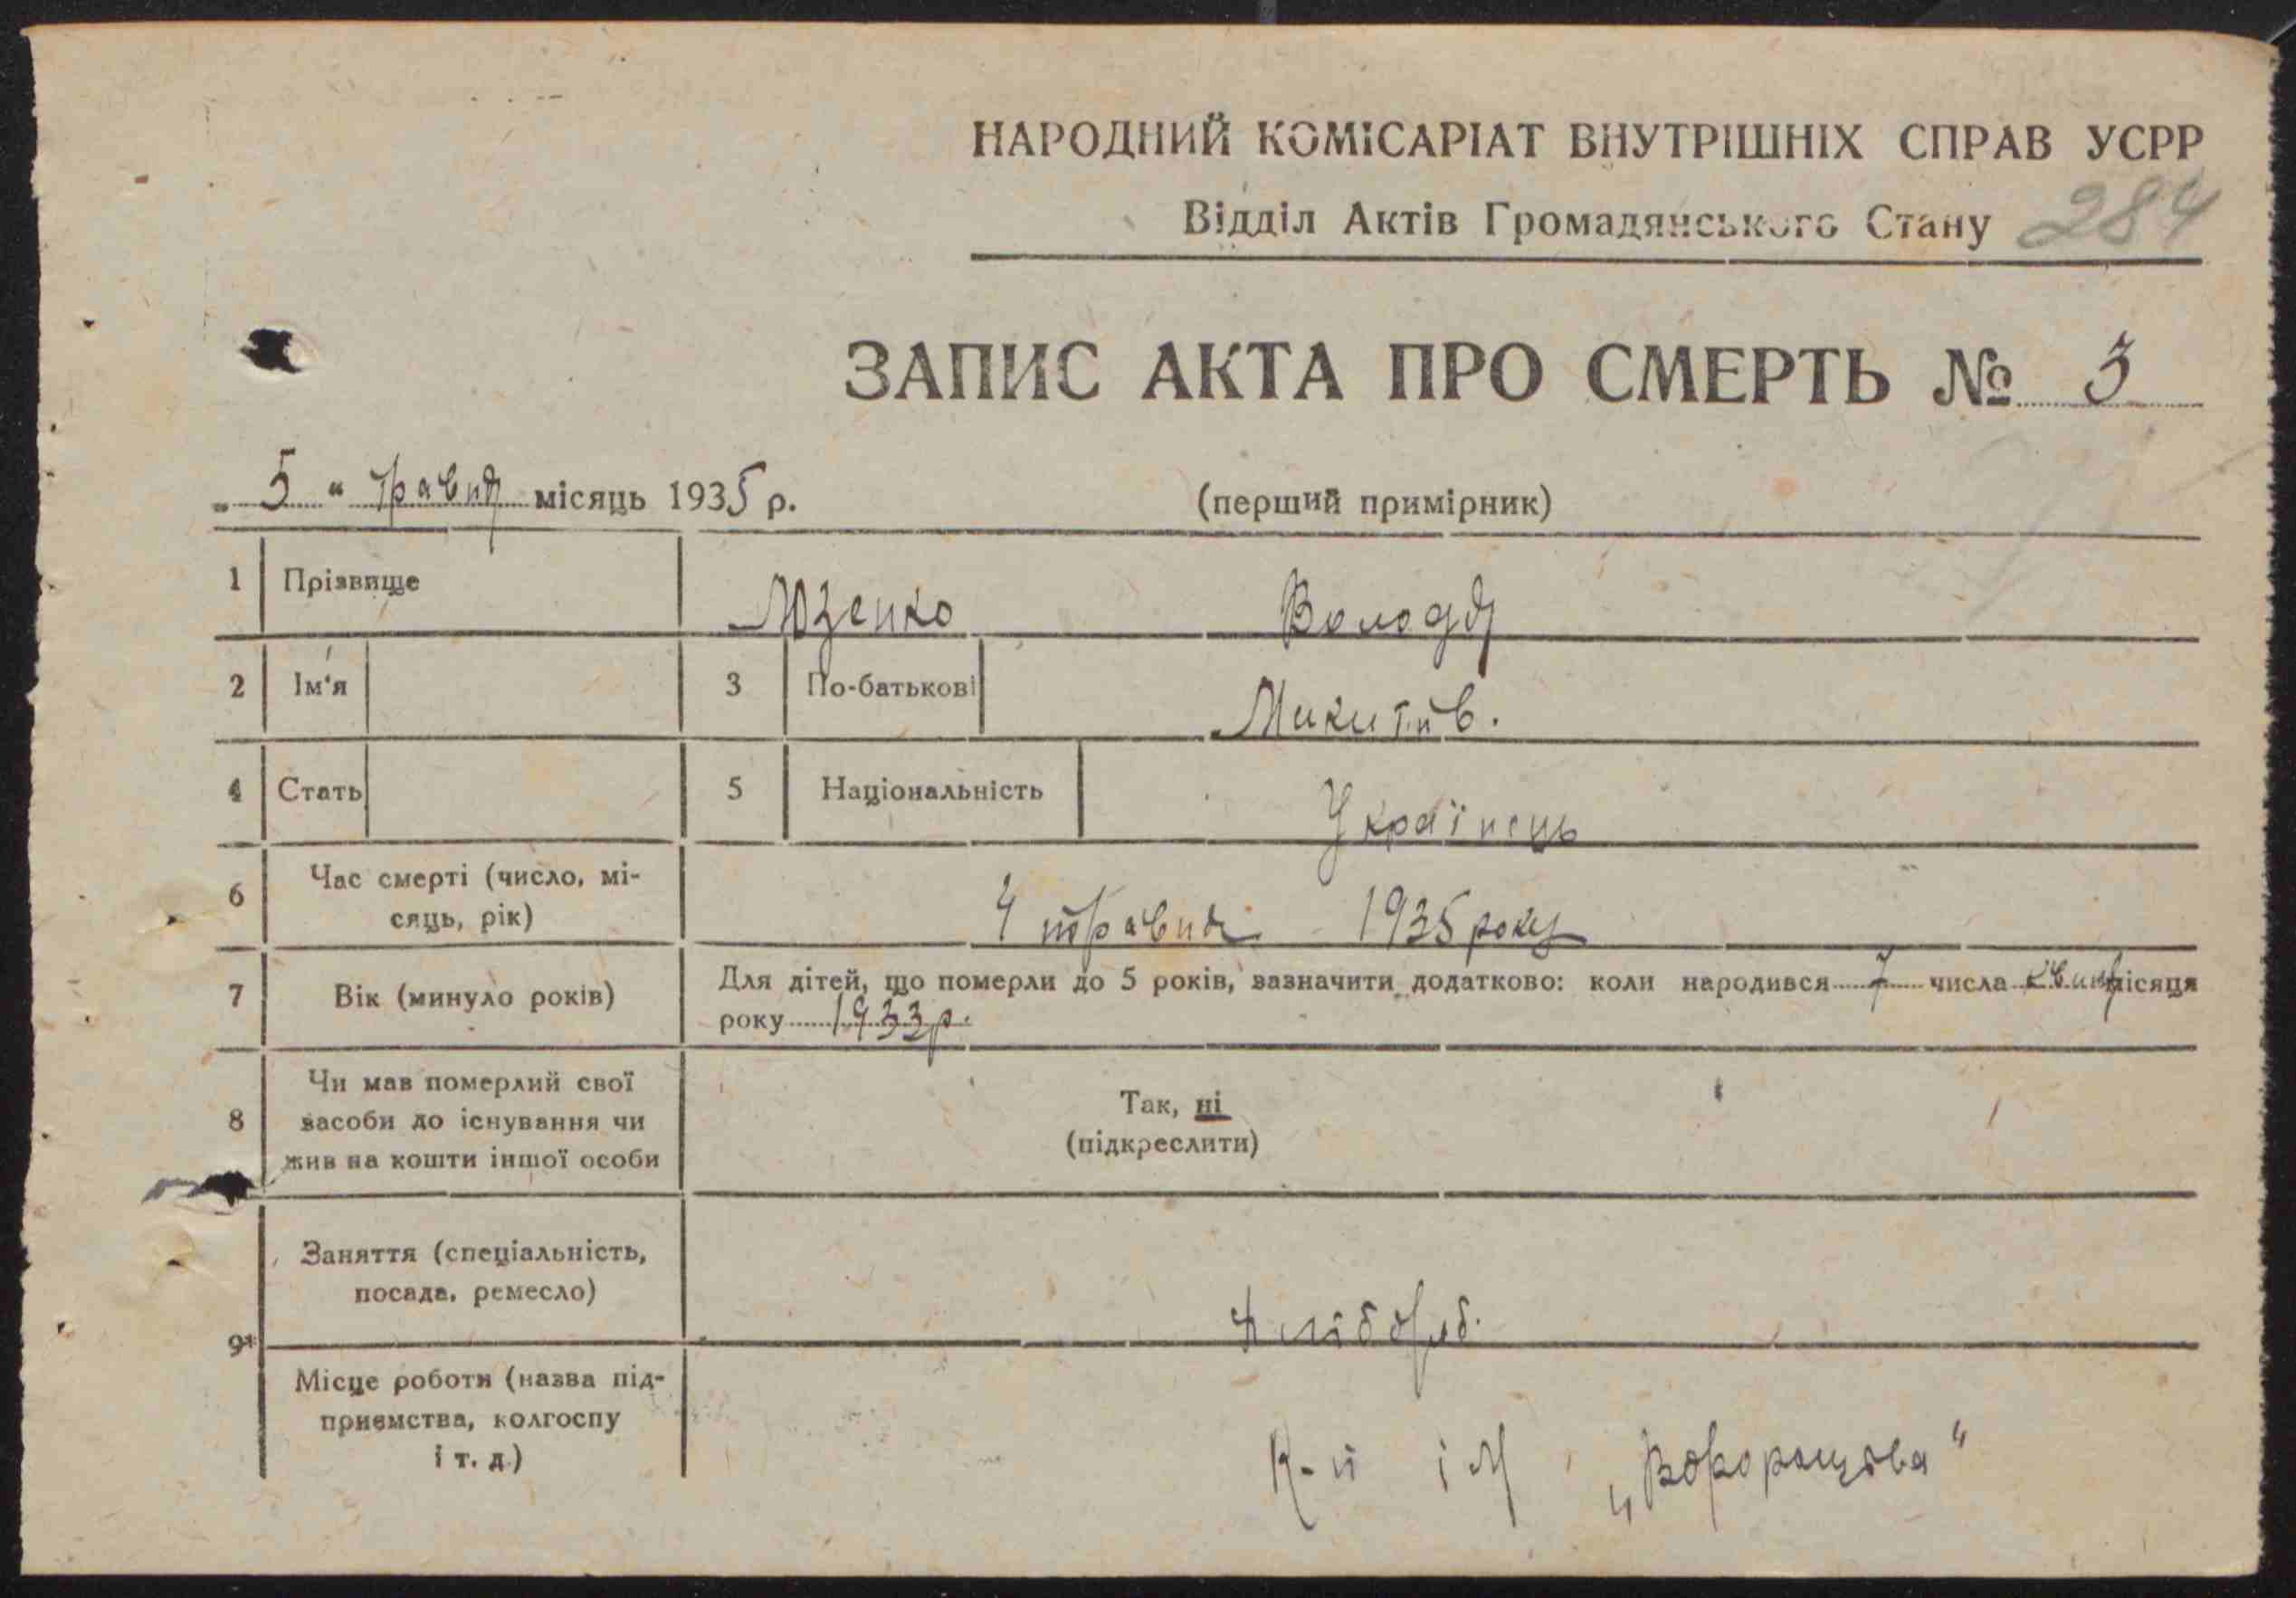 НАРОДНИЙ КОМІСАРІАТ ВНУТРІШНІХ СПРАВ УСРР
Відділ Актів Громадянського Стану 284
ЗАПИС АКТА ПРО СМЕРТЬ № 3
„ 5 " травня місяць 1935 р. (перший примірник)
1 Прізвище Юзенко Володя
2 Ім'я 3 По-батькові Микитов.
4 Стать 5 Національність Українець
6 Час смерті (число, мі-
сяць, рік) 4 травня 1935 року
7 Вік (минуло років) Для дітей, що померли до 5 років, зазначити додатково: коли народився 7 числа місяця
року 1933 р.
8 Чи мав померлий свої
засоби до існування чи
жив на кошти іншої особи
Так, ні
(підкреслити)
9* Заняття (спеціальність,
посада, ремесло) Хлібороб.
Місце роботи (назва під-
приємства, колгоспу
і т. д.)
К-п ім